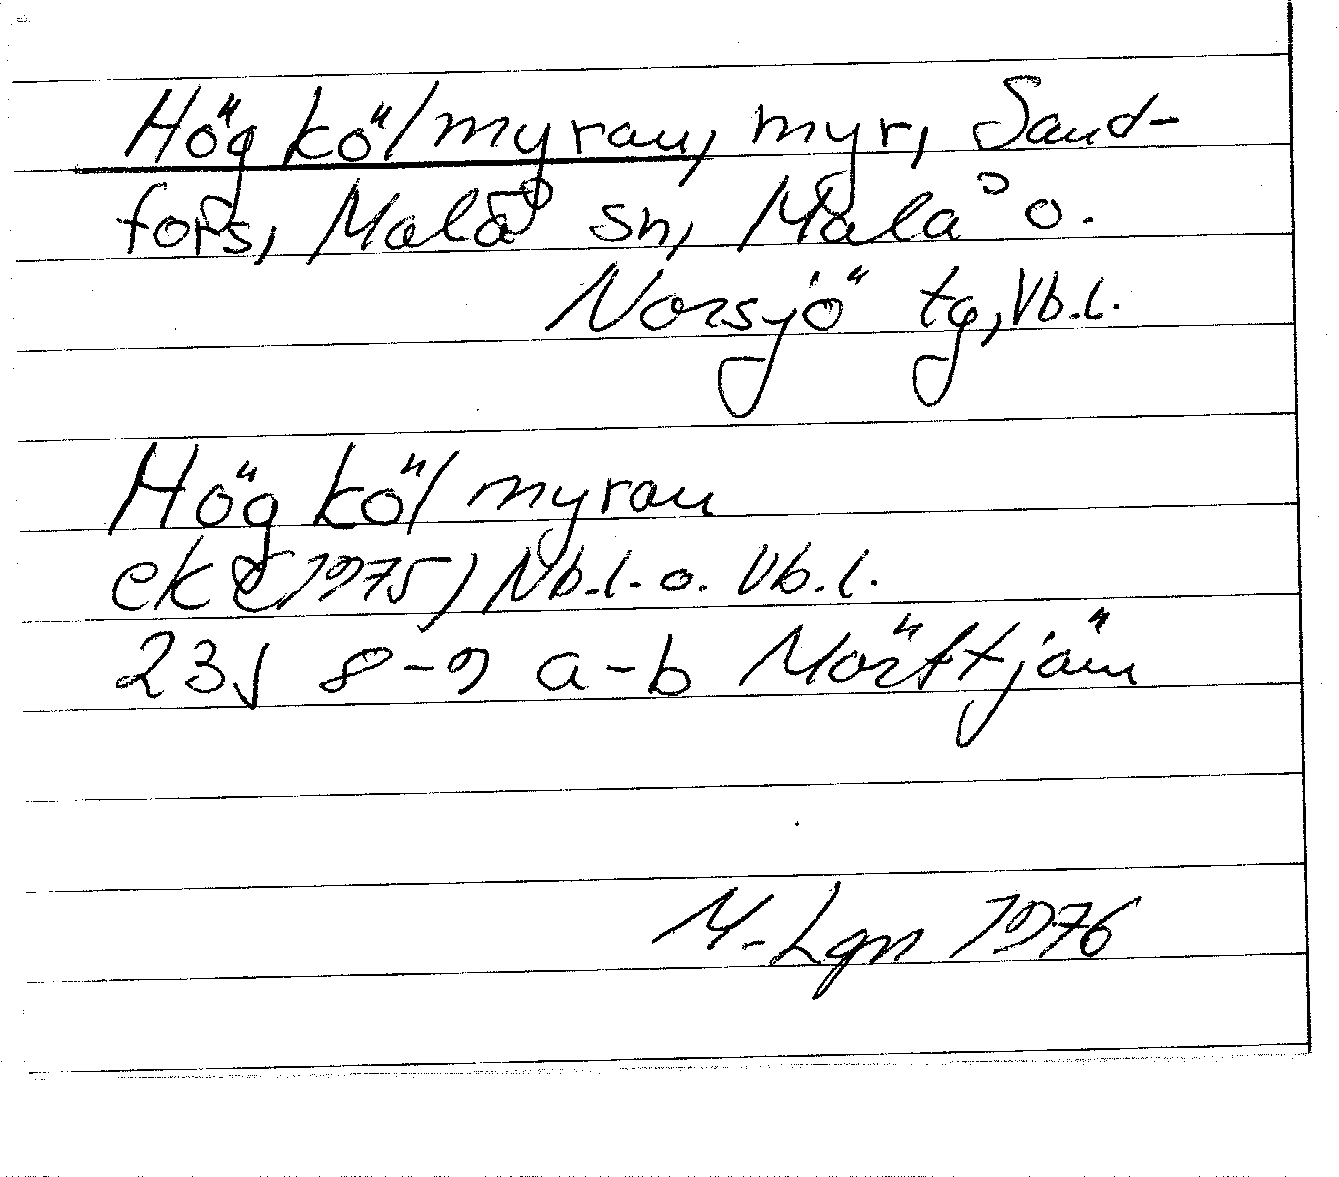 Högkölmyran, myr, Sand-
fors, Malå sn, Malå o.
Norsjö tg, Vb.l.
Högkölmyran
ek (1975) Nb.l. o. Vb.l.
23J 8-9 a-b Mörttjärn
M-Lgn 1976